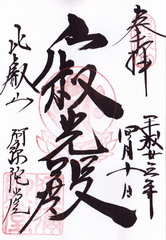 奉拝
平成廿三年
四月十日
寂光殿
比叡山
阿弥陀堂